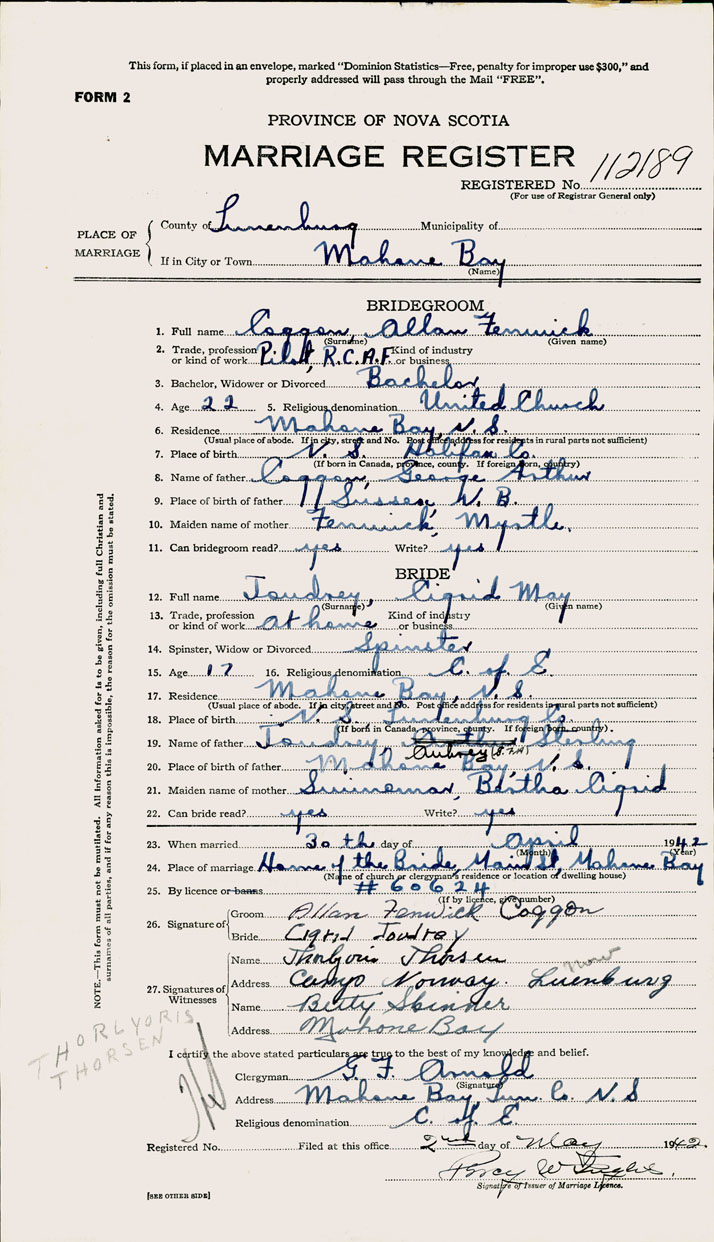 This form, if placed in an envelope, marked "Dominion Statistics—Free, penalty for improper use $300," and
properly addressed will pass through the Mail "FREE".
FORM 2
PROVINCE OF NOVA SCOTIA
MARRIAGE REGISTER
112189
REGISTERED No.
(For use of Registrar General only)
PLACE OF MARRIAGE
County of Lunenburg Municipality of
If in City or Town Mahone Bay
(Name)
BRIDEGROOM
1. Full name Coggon, Allan Fenwick
(Surname) (Given name)
2. Trade, profession or kind of work Pilot, R.C.A.F. Kind of industry or business
3. Bachelor, Widower or Divorced Bachelor
4. Age 22 5. Religious denomination United Church
6. Residence Mahone Bay, N.S.
(Usual place of abode. If in city, street and No. Post office address for residents in rural parts not sufficient)
7. Place of birth N.S. Halifax Co.
(If born in Canada, province, county. If foreign born, country)
8. Name of father Coggon, George Arthur
9. Place of birth of father Sussex, N.B.
10. Maiden name of mother Fenwick, Myrtle.
11. Can bridegroom read? yes Write? yes
BRIDE
12. Full name Joudrey, Cigrid May
(Surname) (Given name)
13. Trade, profession or kind of work at home Kind of industry or business
14. Spinster, Widow or Divorced Spinster
15. Age 17 16. Religious denomination C. of E.
17. Residence Mahone Bay, N.S.
(Usual place of abode. If in city street and No. Post office address for residents in rural parts not sufficient)
18. Place of birth N.S. Lunenburg Co.
(If born in Canada, province, county. If foreign born, country).
19. Name of father Joudrey Sterling
Aubrey
20. Place of birth of father Mahone Bay, N.S.
21. Maiden name of mother Swinemar, Bertha Cigrid
22. Can bride read? yes Write? yes
23. When married 30 th day of April 1942
(Month) (Year)
24. Place of marriage Home of the Bride, Main St, Mahone Bay
(Name of church or clergyman's residence or location of dwelling house)
25. By licence or banns # 60624
(If by licence, give number)
26. Signature of
Groom Allan Fenwick Coggon
Bride Cigrid Joudrey
27. Signatures of Witnesses
Name Thorlyoris Thorsen
Address Camp Norway. Lunenburg
Name Betty Skinner
Address Mahone Bay
THORLYORIS
THORSEN
I certify the above stated particulars are true to the best of my knowledge and belief.
Clergyman G. F. Arnold
(Signature)
Address Mahone Bay, Lun. Co. N.S
Religious denomination C. of E.
Registered No. Filed at this office 2nd day of May 1942.
Percy W
Signature of Issuer of Marriage Licence.
[SEE OTHER SIDE]
NOTE.—This form must not be mutilated. All information asked for is to be given, including full Christian and
surnames of all parties, and if for any reason this is impossible, the reason for the omission must be stated.